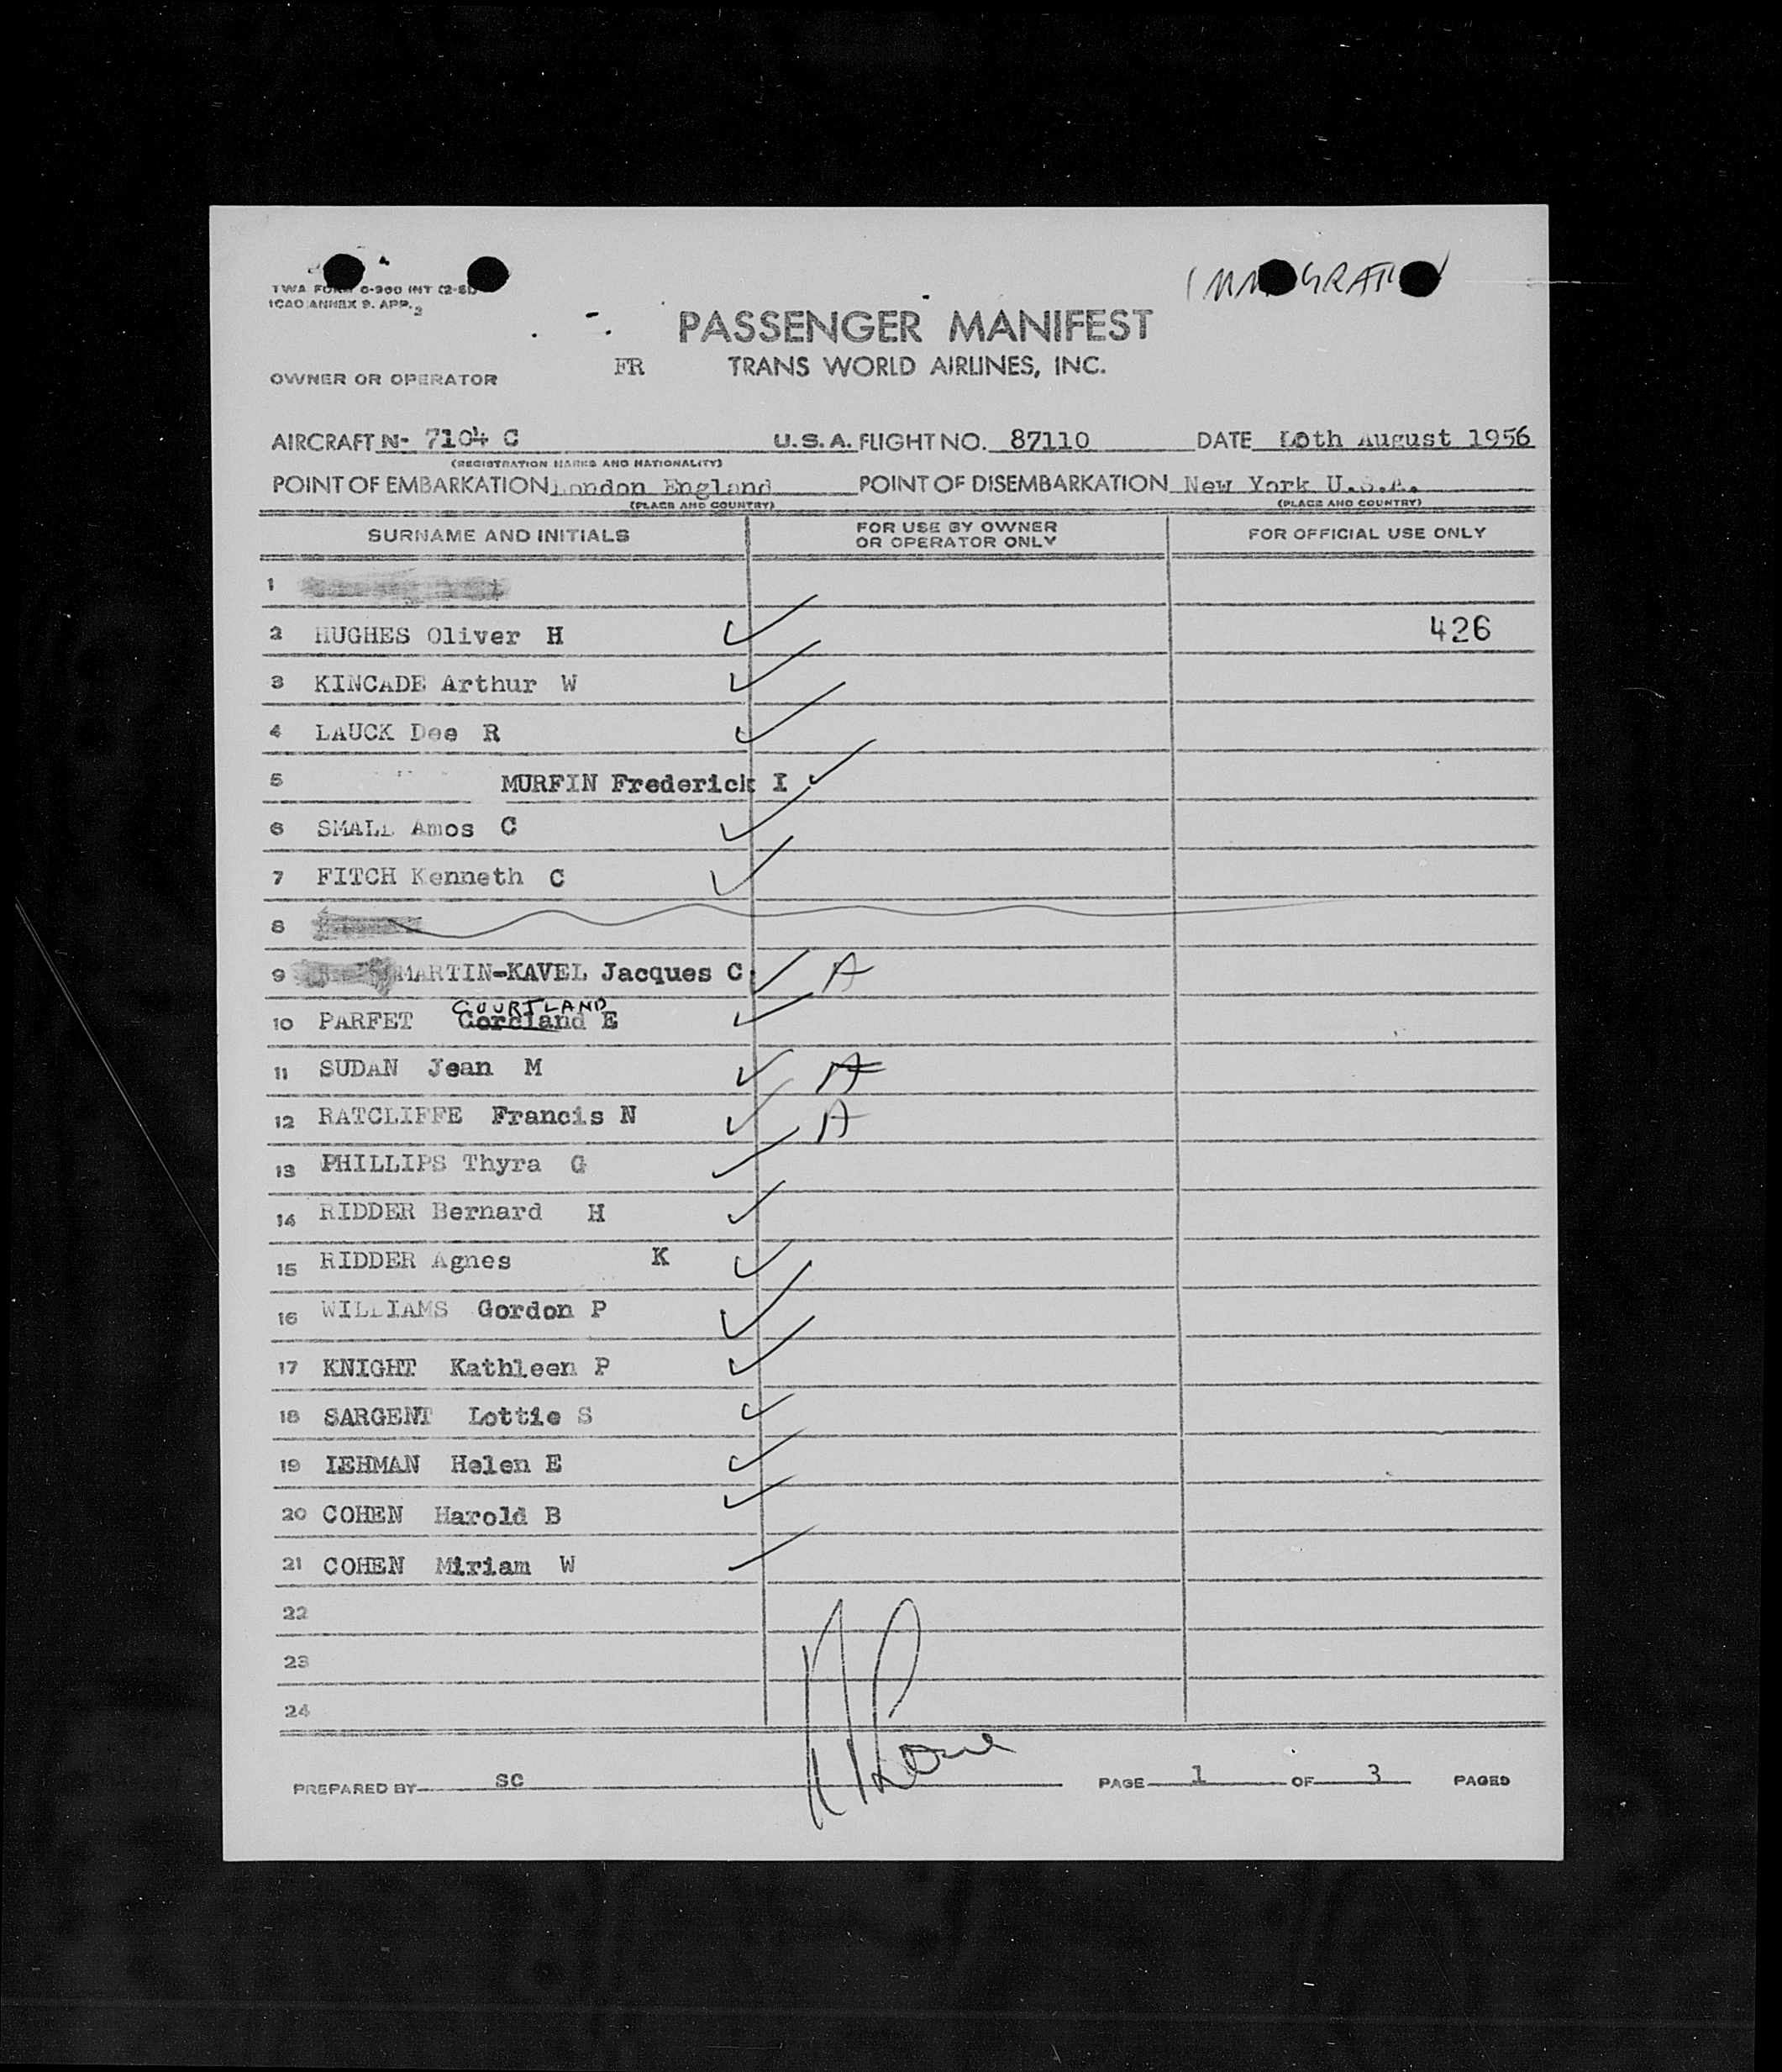 TWA FORM O-900 INT (2-51)
ICAO ANNEX 9. APP. 2
IMMIGRATION
PASSENGER MANIFEST
OWNER OR OPERATOR FR TRANS WORLD AIRLINES, INC.
AIRCRAFT N- 7104 C U.S.A. FLIGHT NO. 87110 DATE 10th August 1956
(REGISTRATION MARKS AND NATIONALITY)
POINT OF EMBARKATION London England POINT OF DISEMBARKATION New York U.S.A.
(PLACE AND COUNTRY) (PLACE AND COUNTRY)
SURNAME AND INITIALS FOR USE BY OWNER OR OPERATOR ONLY FOR OFFICIAL USE ONLY
1
2 HUGHES Oliver H ✓ 426
3 KINCADE Arthur W ✓
4 LAUCK Dee R ✓
5 MURFIN Frederick I ✓
6 SMALL Amos C ✓
7 FITCH Kenneth C ✓
8
9 MARTIN-KAVEL Jacques C ✓ A
COURTLAND
10 PARFET Cordland E ✓
11 SUDAN Jean M ✓ A
12 RATCLIFFE Francis N ✓ A
13 PHILLIPS Thyra G ✓
14 RIDDER Bernard H ✓
15 RIDDER Agnes K ✓
16 WILLIAMS Gordon P ✓
17 KNIGHT Kathleen P ✓
18 SARGENT Lottie S ✓
19 LEHMAN Helen E ✓
20 COHEN Harold B ✓
21 COHEN Miriam W ✓
22
23
24
PREPARED BY SC PAGE 1 OF 3 PAGES